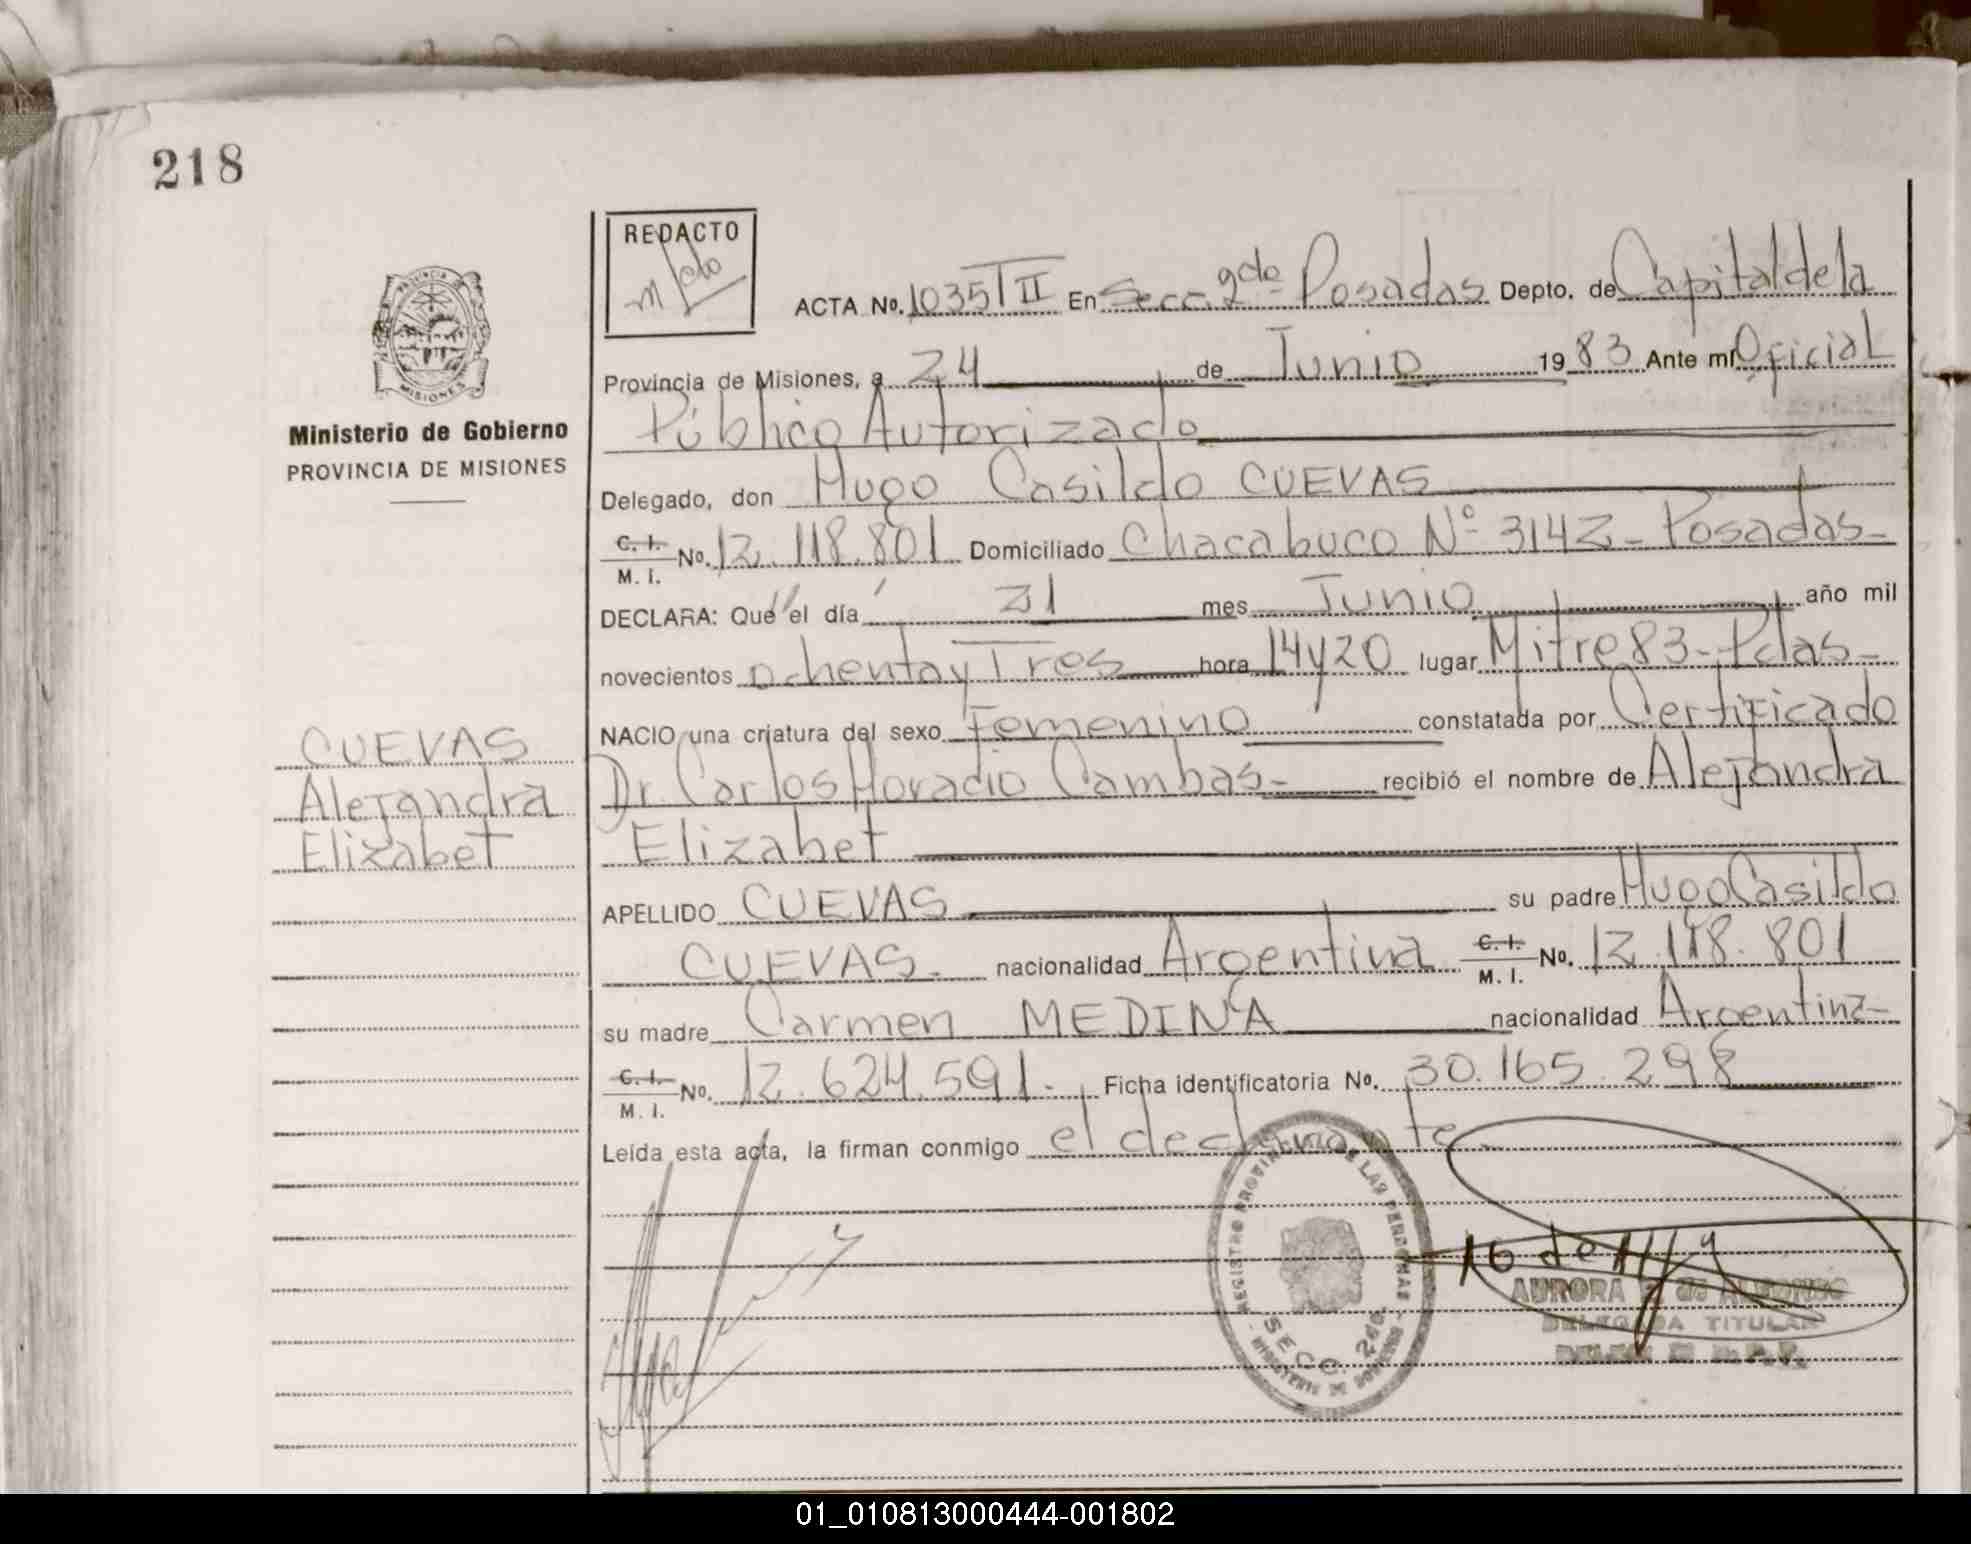 218
REDACTO
ACTA No. 1035 T II En Secc. 2da. Posadas Depto. de Capital de la
Provincia de Misiones, a 24 de Junio 1983 Ante mí Oficial
Público Autorizado
Ministerio de Gobierno
PROVINCIA DE MISIONES
Delegado, don Hugo Casildo CUEVAS
C. I. M. I. No. 12.118.801 Domiciliado Chacabuco Nº 3142 - Posadas -
DECLARA: Que el día 21 mes Junio año mil
novecientos ochenta y Tres hora 14 y 20 lugar Mitre 83 - Pdas -
NACIO una criatura del sexo Femenino constatada por Certificado
Dr. Carlos Horacio Cambas - recibió el nombre de Alejandra
Elizabet
CUEVAS
Alejandra
Elizabet
APELLIDO CUEVAS su padre Hugo Casildo
CUEVAS. nacionalidad Argentina C. I. M. I. No. 12.118.801
su madre Carmen MEDINA nacionalidad Argentina
C. I. M. I. No. 12.624.591. Ficha identificatoria No. 30.165.298
Leída esta acta, la firman conmigo el declarante.
REGISTRO PROVINCIAL DE LAS PERSONAS
SECC. 2da.
MINISTERIO DE GOBIERNO
AURORA
DELEGADA TITULAR
01_010813000444-001802